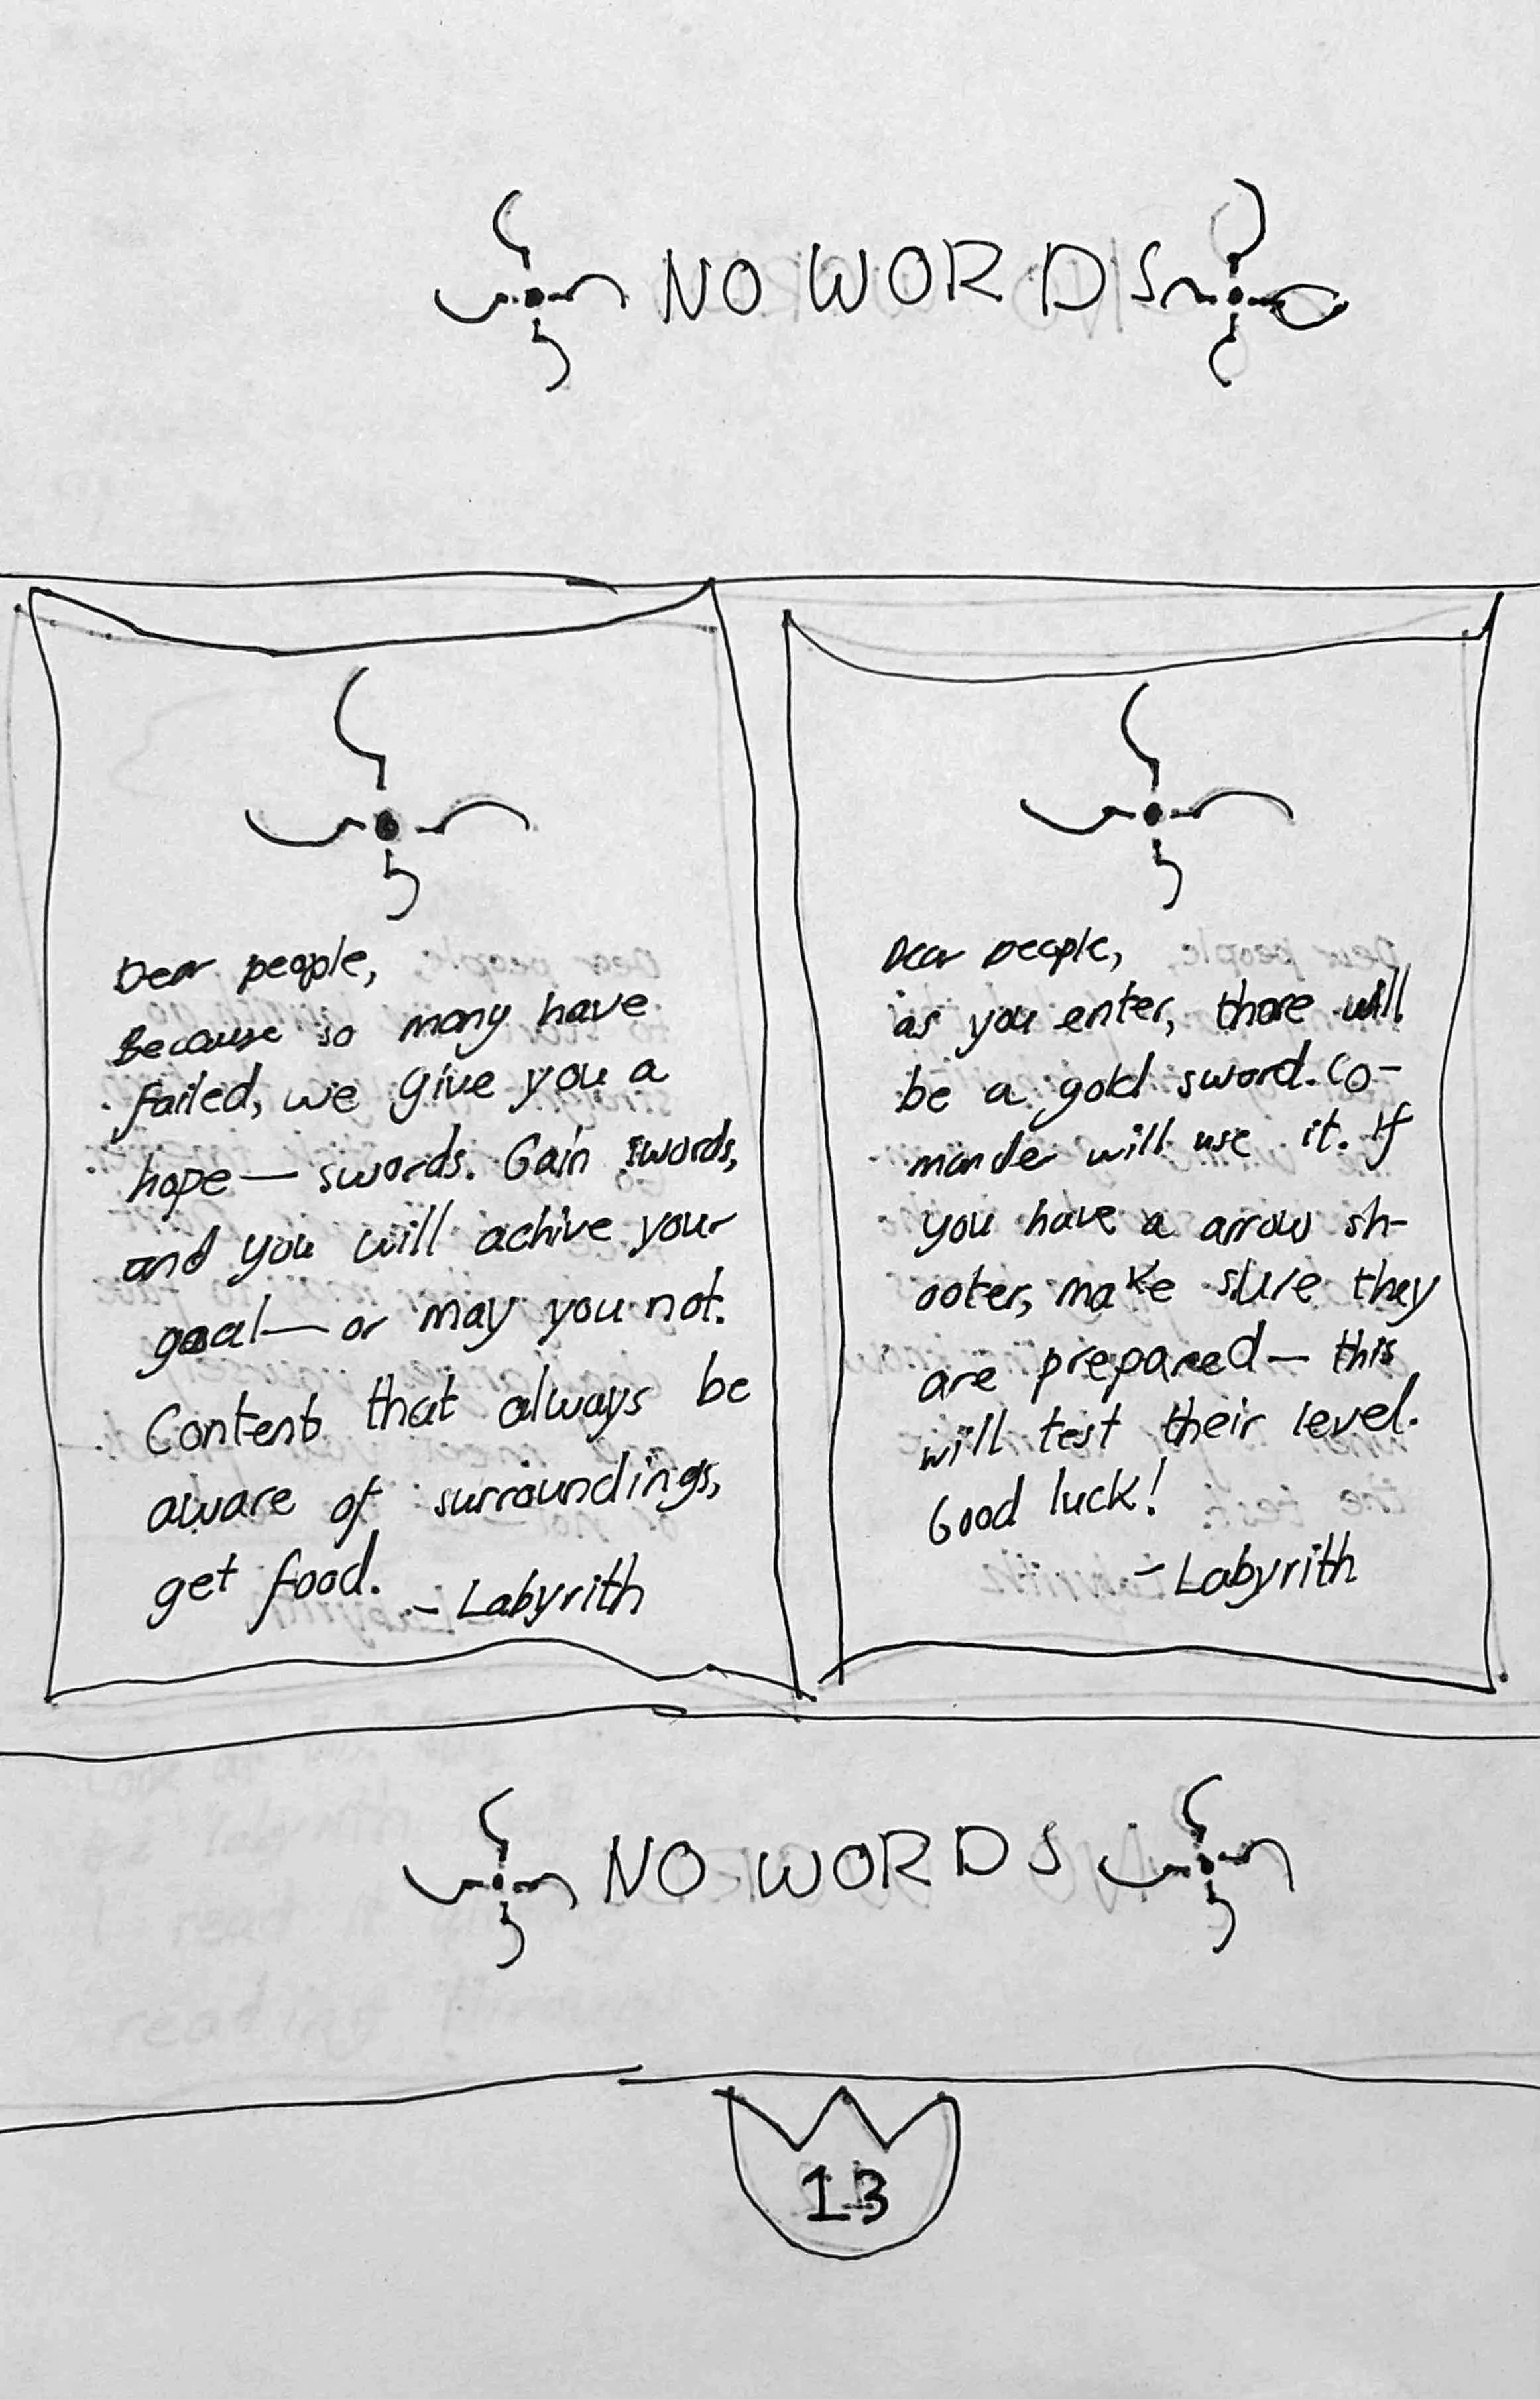 NO WORDS
Dear people,
Because so many have
failed, we give you a
hope— swords. Gain swords,
and you will achive your
goal— or may you not.
Content that always be
aware of surroundings,
get food.
- Labyrith
Dear people,
as you enter, there will
be a gold sword. Co-
mander will use it. If
you have a arrow sh-
ooter, make sure they
are prepared— this
will test their level.
Good luck!
- Labyrith
NO WORDS
13